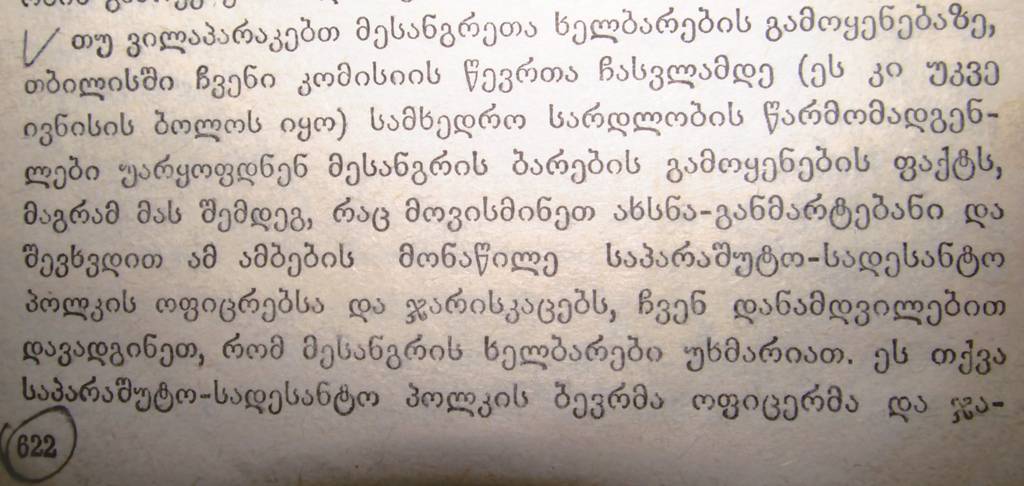 თუ ვილაპარაკებთ მესანგრეთა ხელბარების გამოყენებაზე,
თბილისში ჩვენი კომისიის წევრთა ჩასვლამდე (ეს კი უკვე
ივნისის ბოლოს იყო) სამხედრო სარდლობის წარმომადგენ-
ლები უარყოფდნენ მესანგრის ბარების გამოყენების ფაქტს,
მაგრამ მას შემდეგ, რაც მოვისმინეთ ახსნა-განმარტებანი და
შევხვდით ამ ამბების მონაწილე საპარაშუტო-სადესანტო
პოლკის ოფიცრებსა და ჯარისკაცებს, ჩვენ დანამდვილებით
დავადგინეთ, რომ მესანგრის ხელბარები უხმარიათ. ეს თქვა
საპარაშუტო-სადესანტო პოლკის ბევრმა ოფიცერმა და ჯა-
622